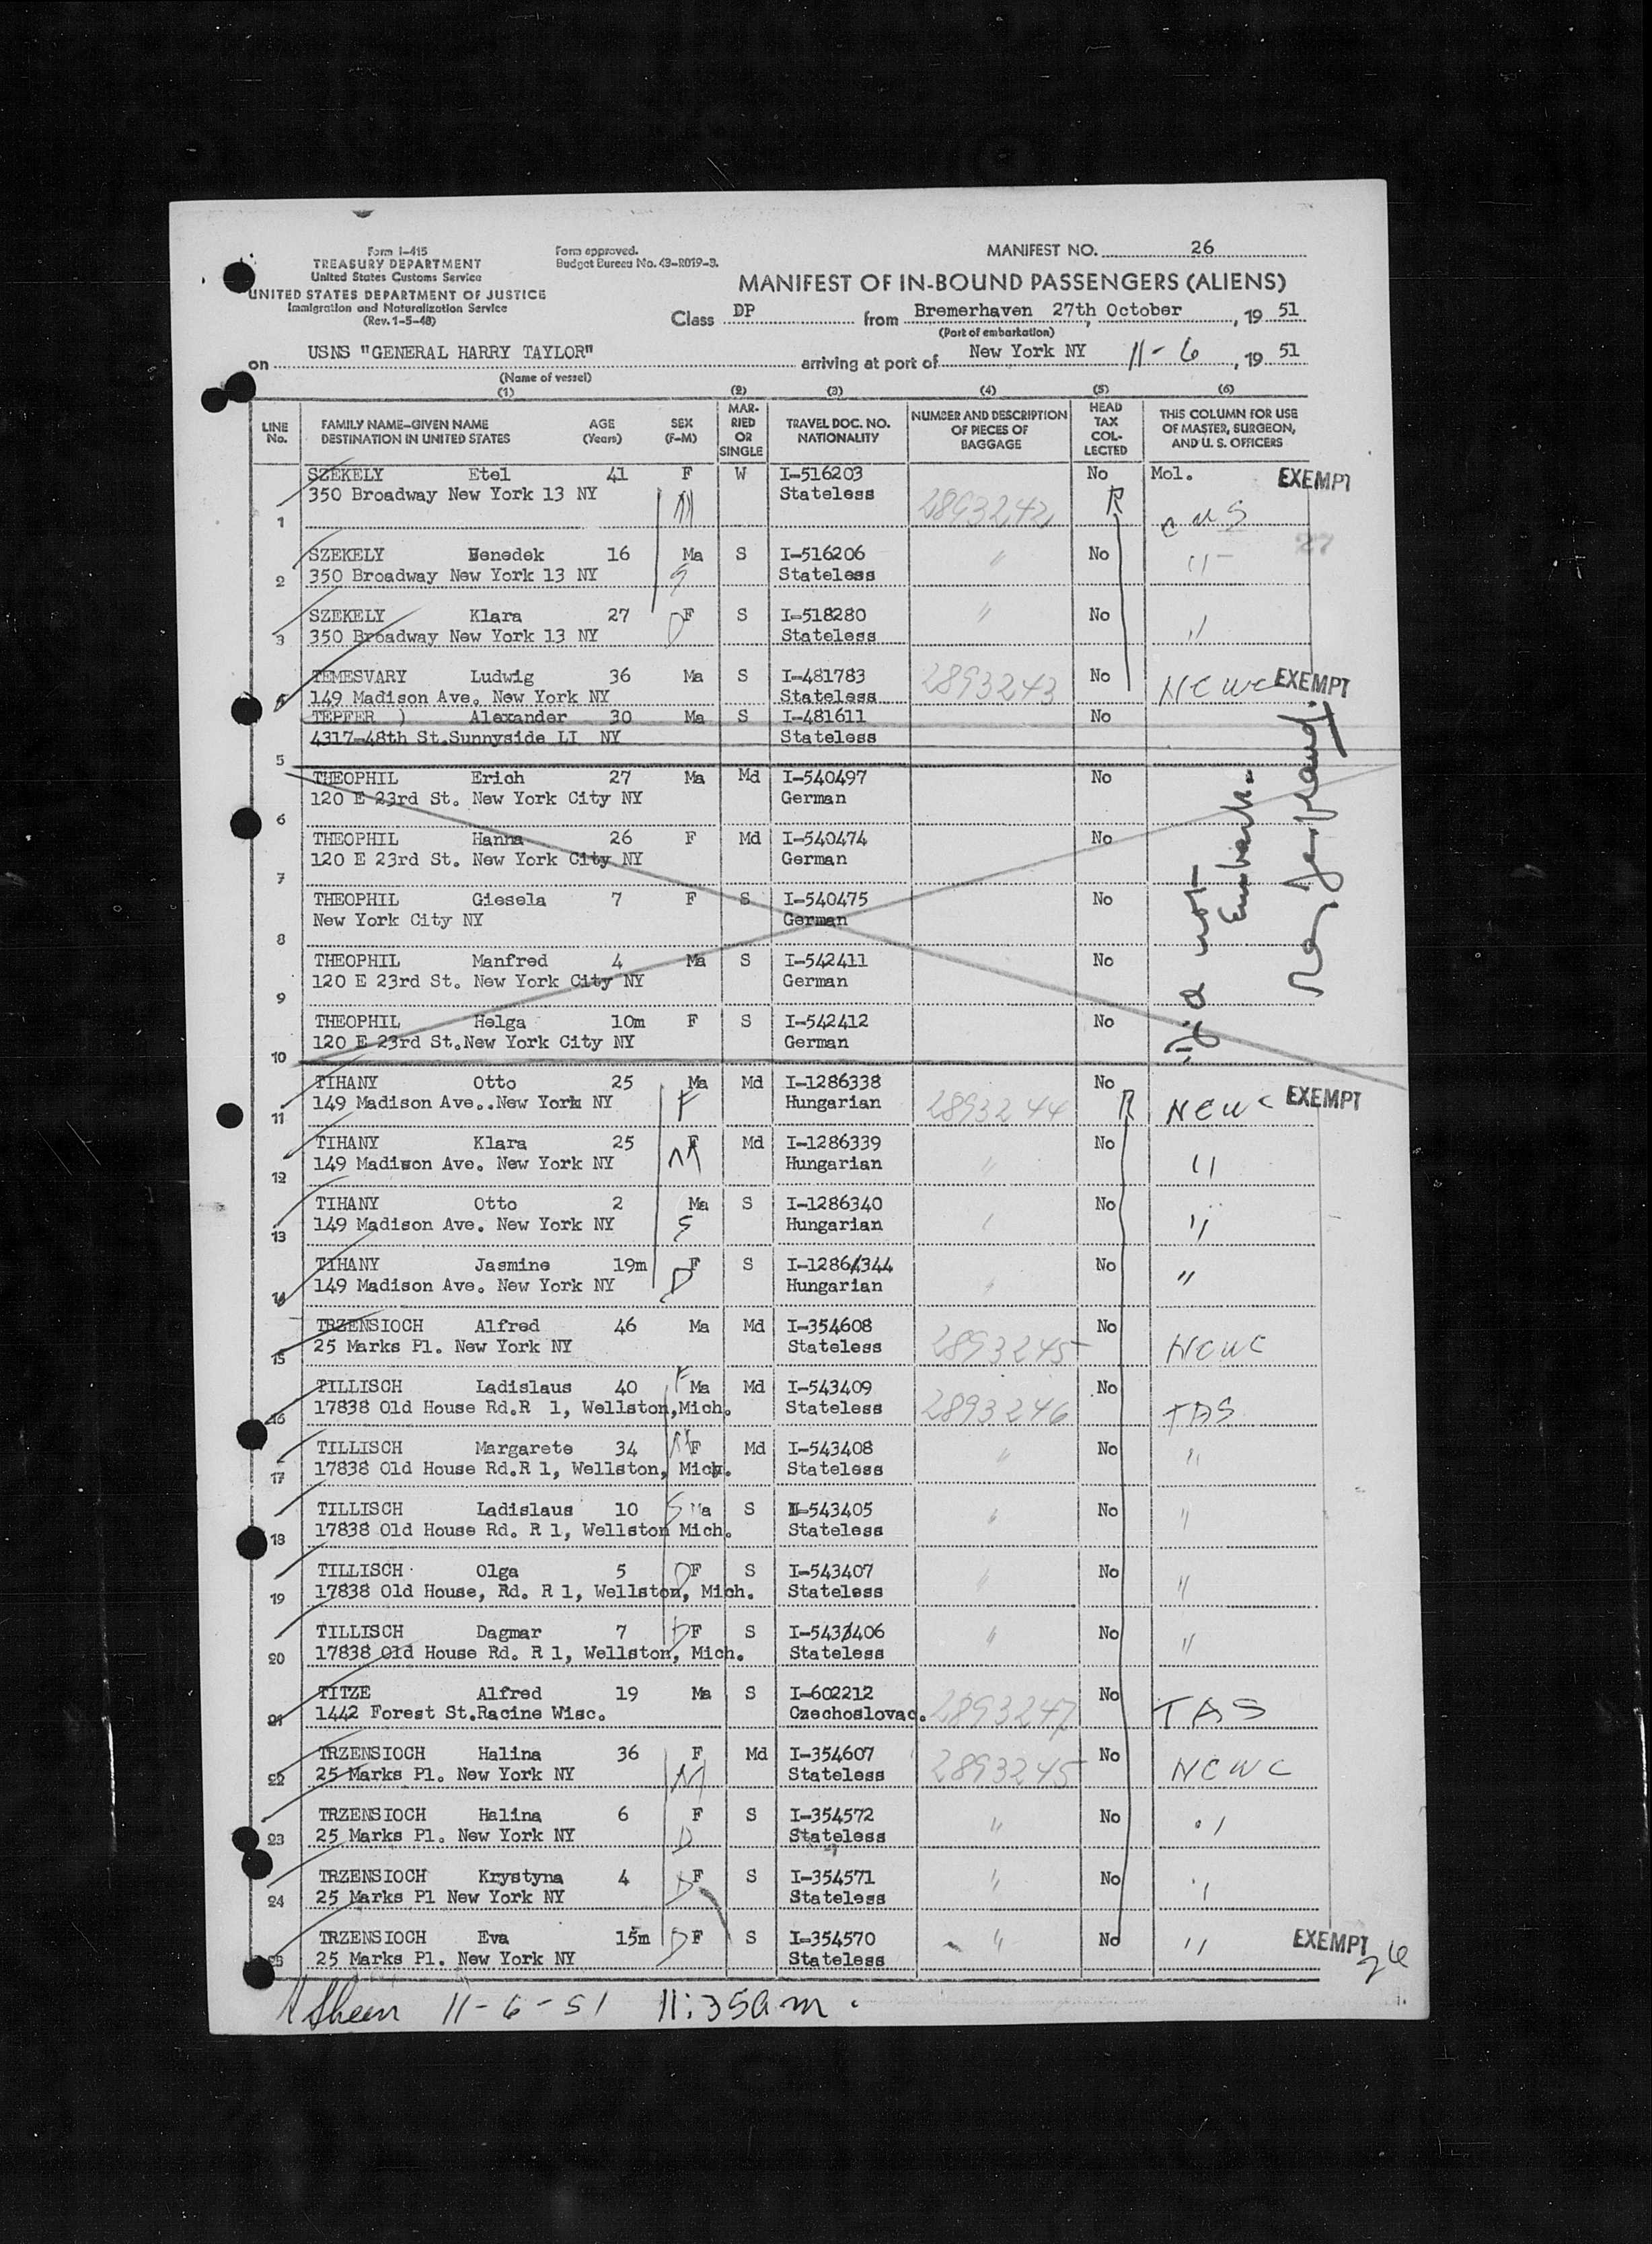 Form I-415
TREASURY DEPARTMENT
United States Customs Service
UNITED STATES DEPARTMENT OF JUSTICE
Immigration and Naturalization Service
(Rev. 1-5-48)
Form approved.
Budget Bureau No. 43-R019-3.
MANIFEST NO. 26
MANIFEST OF IN-BOUND PASSENGERS (ALIENS)
Class DP from Bremerhaven 27th October, 19 51
(Port of embarkation)
on USNS "GENERAL HARRY TAYLOR" arriving at port of New York NY 11-6, 19 51
(Name of vessel)
(1) (2) (3) (4) (5) (6)
LINE No. FAMILY NAME-GIVEN NAME DESTINATION IN UNITED STATES AGE (Years) SEX (F-M) MARRIED OR SINGLE TRAVEL DOC. NO. NATIONALITY NUMBER AND DESCRIPTION OF PIECES OF BAGGAGE HEAD TAX COLLECTED THIS COLUMN FOR USE OF MASTER, SURGEON, AND U. S. OFFICERS
SZEKELY Etel 41 F W I-516203 No Mol. EXEMPT
350 Broadway New York 13 NY M Stateless 2893242 R
1 CWS
SZEKELY Benedek 16 Ma S I-516206 " No "
2 350 Broadway New York 13 NY S Stateless 27
SZEKELY Klara 27 F S I-518280 " No
3 350 Broadway New York 13 NY D Stateless "
TEMESVARY Ludwig 36 Ma S I-481783 2893243 No NCWC EXEMPT
4 149 Madison Ave. New York NY Stateless
TEPFER ) Alexander 30 Ma S I-481611 No
4317-48th St.Sunnyside LI NY Stateless
5
THEOPHIL Erich 27 Ma Md I-540497 No
120 E 23rd St. New York City NY German
6
THEOPHIL Hanna 26 F Md I-540474 No
120 E 23rd St. New York City NY German
7
THEOPHIL Giesela 7 F S I-540475 No
New York City NY German
8
THEOPHIL Manfred 4 Ma S I-542411 No
120 E 23rd St. New York City NY German
9
THEOPHIL Helga 10m F S I-542412 No
120 E 23rd St.New York City NY German
10
Did not
Embark.
TIHANY Otto 25 Ma Md I-1286338 No EXEMPT
11 149 Madison Ave..New York NY F Hungarian 2893244 R NCWC
TIHANY Klara 25 F Md I-1286339 No
12 149 Madison Ave. New York NY M Hungarian " "
TIHANY Otto 2 Ma S I-1286340 No
13 149 Madison Ave. New York NY S Hungarian "
TIHANY Jasmine 19m F S I-1286344 No
14 149 Madison Ave. New York NY D Hungarian " "
TRZENSIOCH Alfred 46 Ma Md I-354608 No
15 25 Marks Pl. New York NY Stateless 2893245 NCWC
TILLISCH Ladislaus 40 F Ma Md I-543409 No
16 17838 Old House Rd.R 1, Wellston,Mich. Stateless 2893246 TAS
TILLISCH Margarete 34 M F Md I-543408 No
17 17838 Old House Rd.R 1, Wellston, Mich. Stateless " "
TILLISCH Ladislaus 10 S Ma S I-543405 No
18 17838 Old House Rd. R 1, Wellston Mich. Stateless " "
TILLISCH Olga 5 D F S I-543407 No
19 17838 Old House, Rd. R 1, Wellston, Mich. Stateless " "
TILLISCH Dagmar 7 D F S I-543406 No
20 17838 Old House Rd. R 1, Wellston, Mich. Stateless " "
TITZE Alfred 19 Ma S I-602212 No
21 1442 Forest St.Racine Wisc. Czechoslovac. 2893247 TAS
TRZENSIOCH Halina 36 F Md I-354607 No
22 25 Marks Pl. New York NY M Stateless 2893245 NCWC
TRZENSIOCH Halina 6 F S I-354572 No
23 25 Marks Pl. New York NY D Stateless " "
TRZENSIOCH Krystyna 4 F S I-354571 No
24 25 Marks Pl New York NY D Stateless " "
TRZENSIOCH Eva 15m D F S I-354570 " No " EXEMPT
25 25 Marks Pl. New York NY Stateless 26
11-6-51 11:35am.